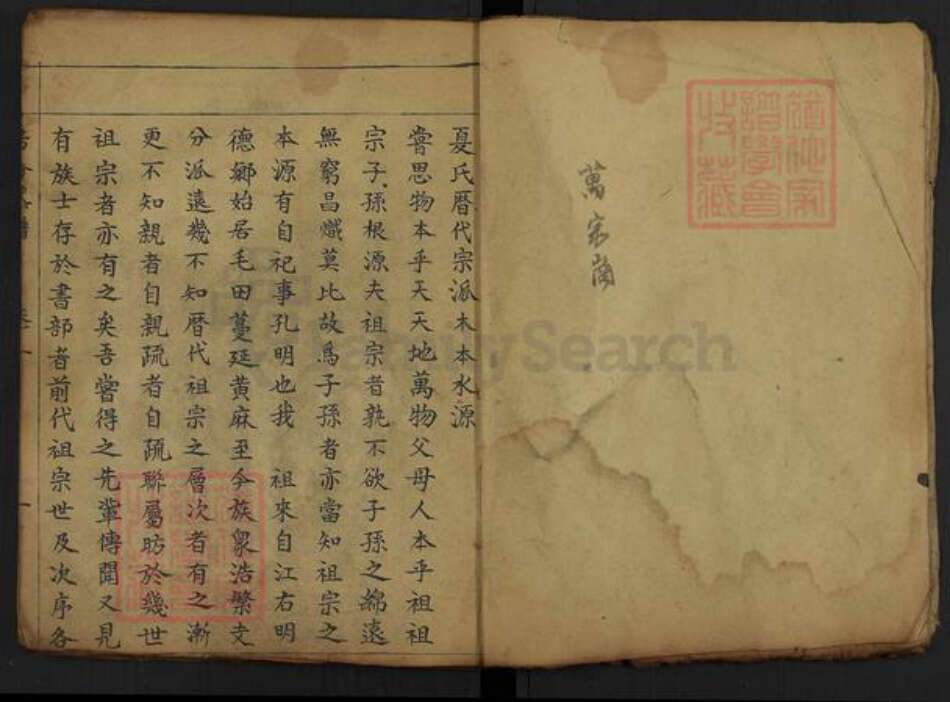 萬宗
夏氏曆代宗派木本水源
嘗思物本乎天天地萬物父母人本乎祖祖
宗子孫根源夫祖宗昔孰不欲子孫之綿遠
無窮昌熾莫比故爲子孫者亦當知祖宗之
本源有自祀事孔明也我 祖來自江右明
德鄉始居毛田蔓延黃麻至今族衆浩繁支
分派遠幾不知曆代祖宗之層次者有之漸
更不知親者自親疏者自疏聯屬昉於幾世
祖宗者亦有之矣吾嘗得之先輩傳聞又見
有族士存於書部者前代祖宗世及次序各
FamilySearch